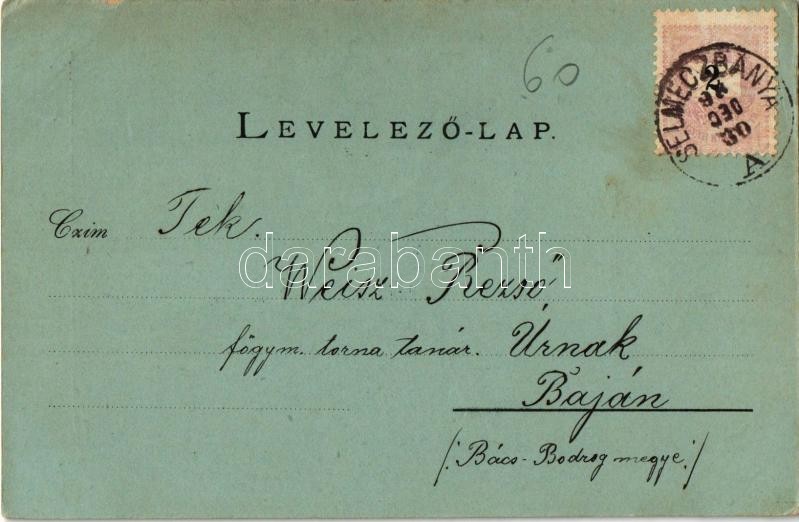 60
LEVELEZŐ-LAP.
SELMECZBÁNYA
2
DEC
30
A
Czim Tek.
Weisz Rezső
darabanth
főgym. torna tanár. Úrnak
Baján
/: Bács-Bodrog megye :/